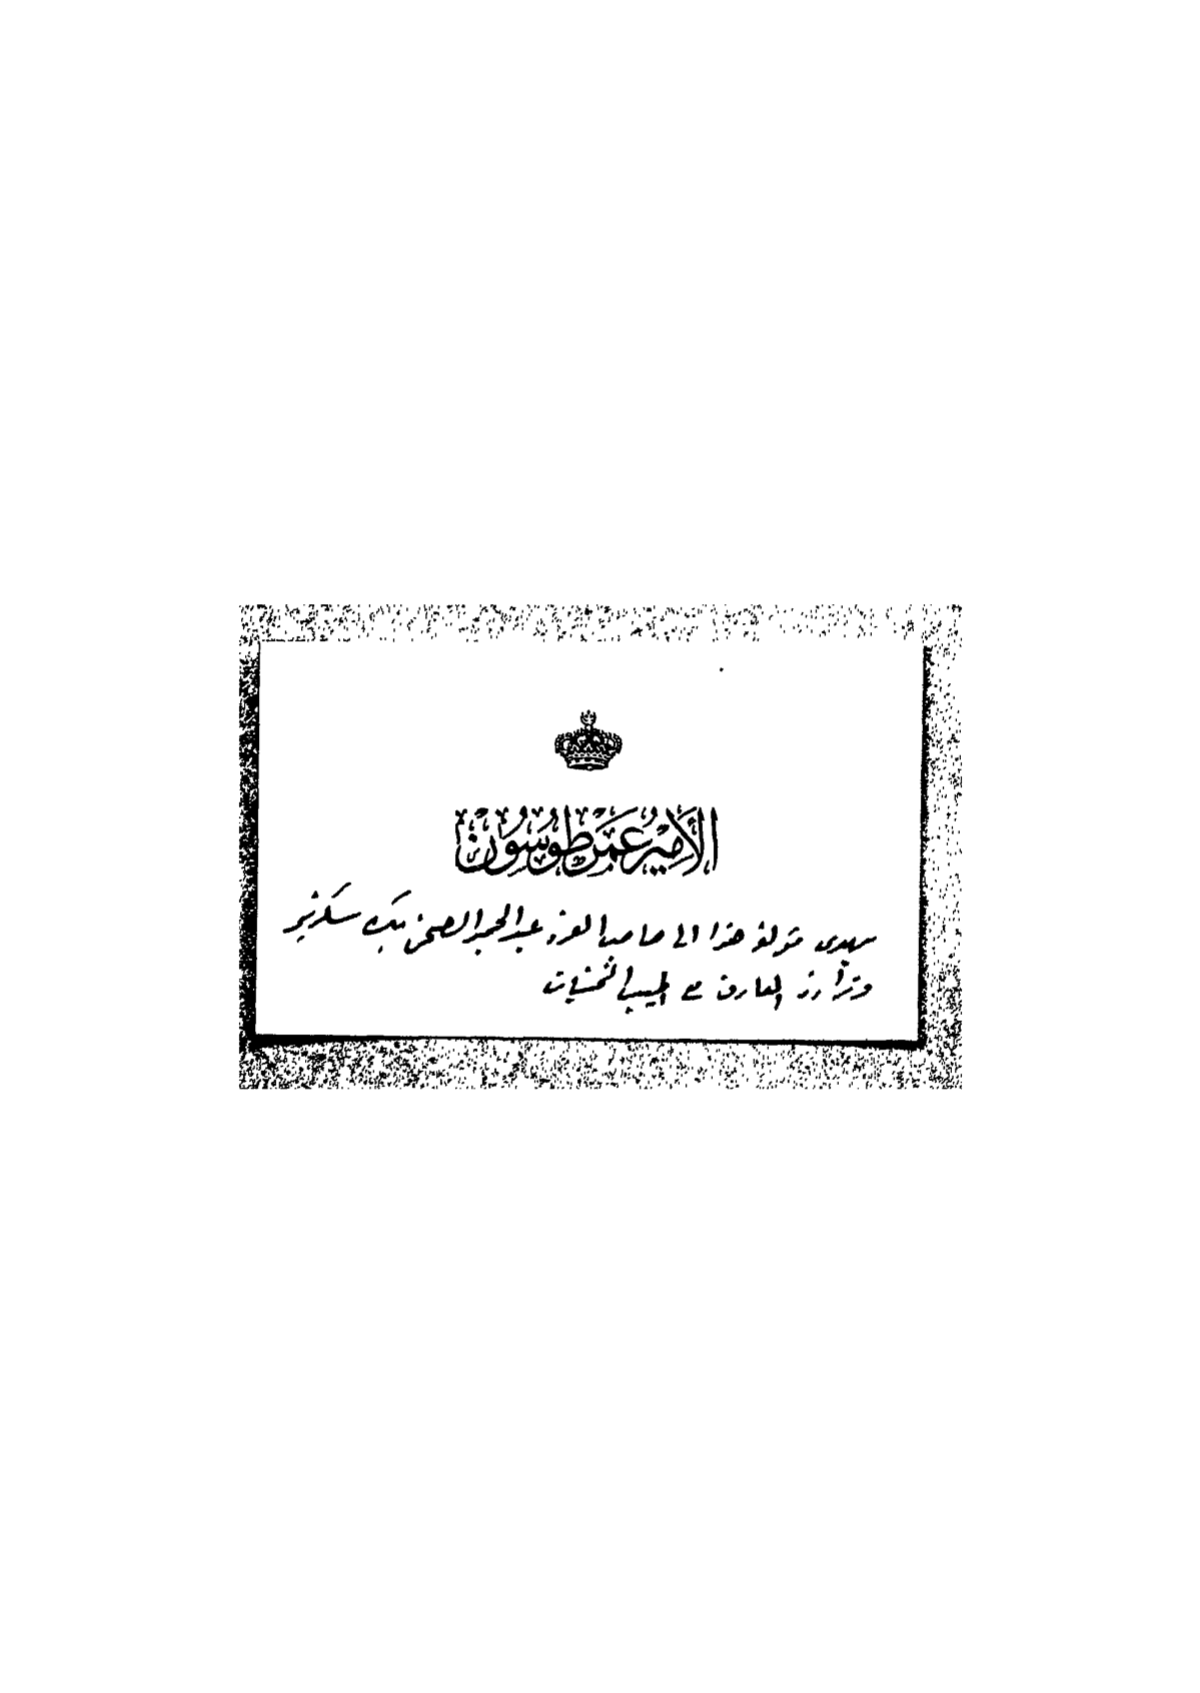 الأمير عمر طوسون
يهدى مؤلفه هذا الى صاحب العزة عبد الحميد بك سكرتير
وزارة المعارف مع أطيب التمنيات